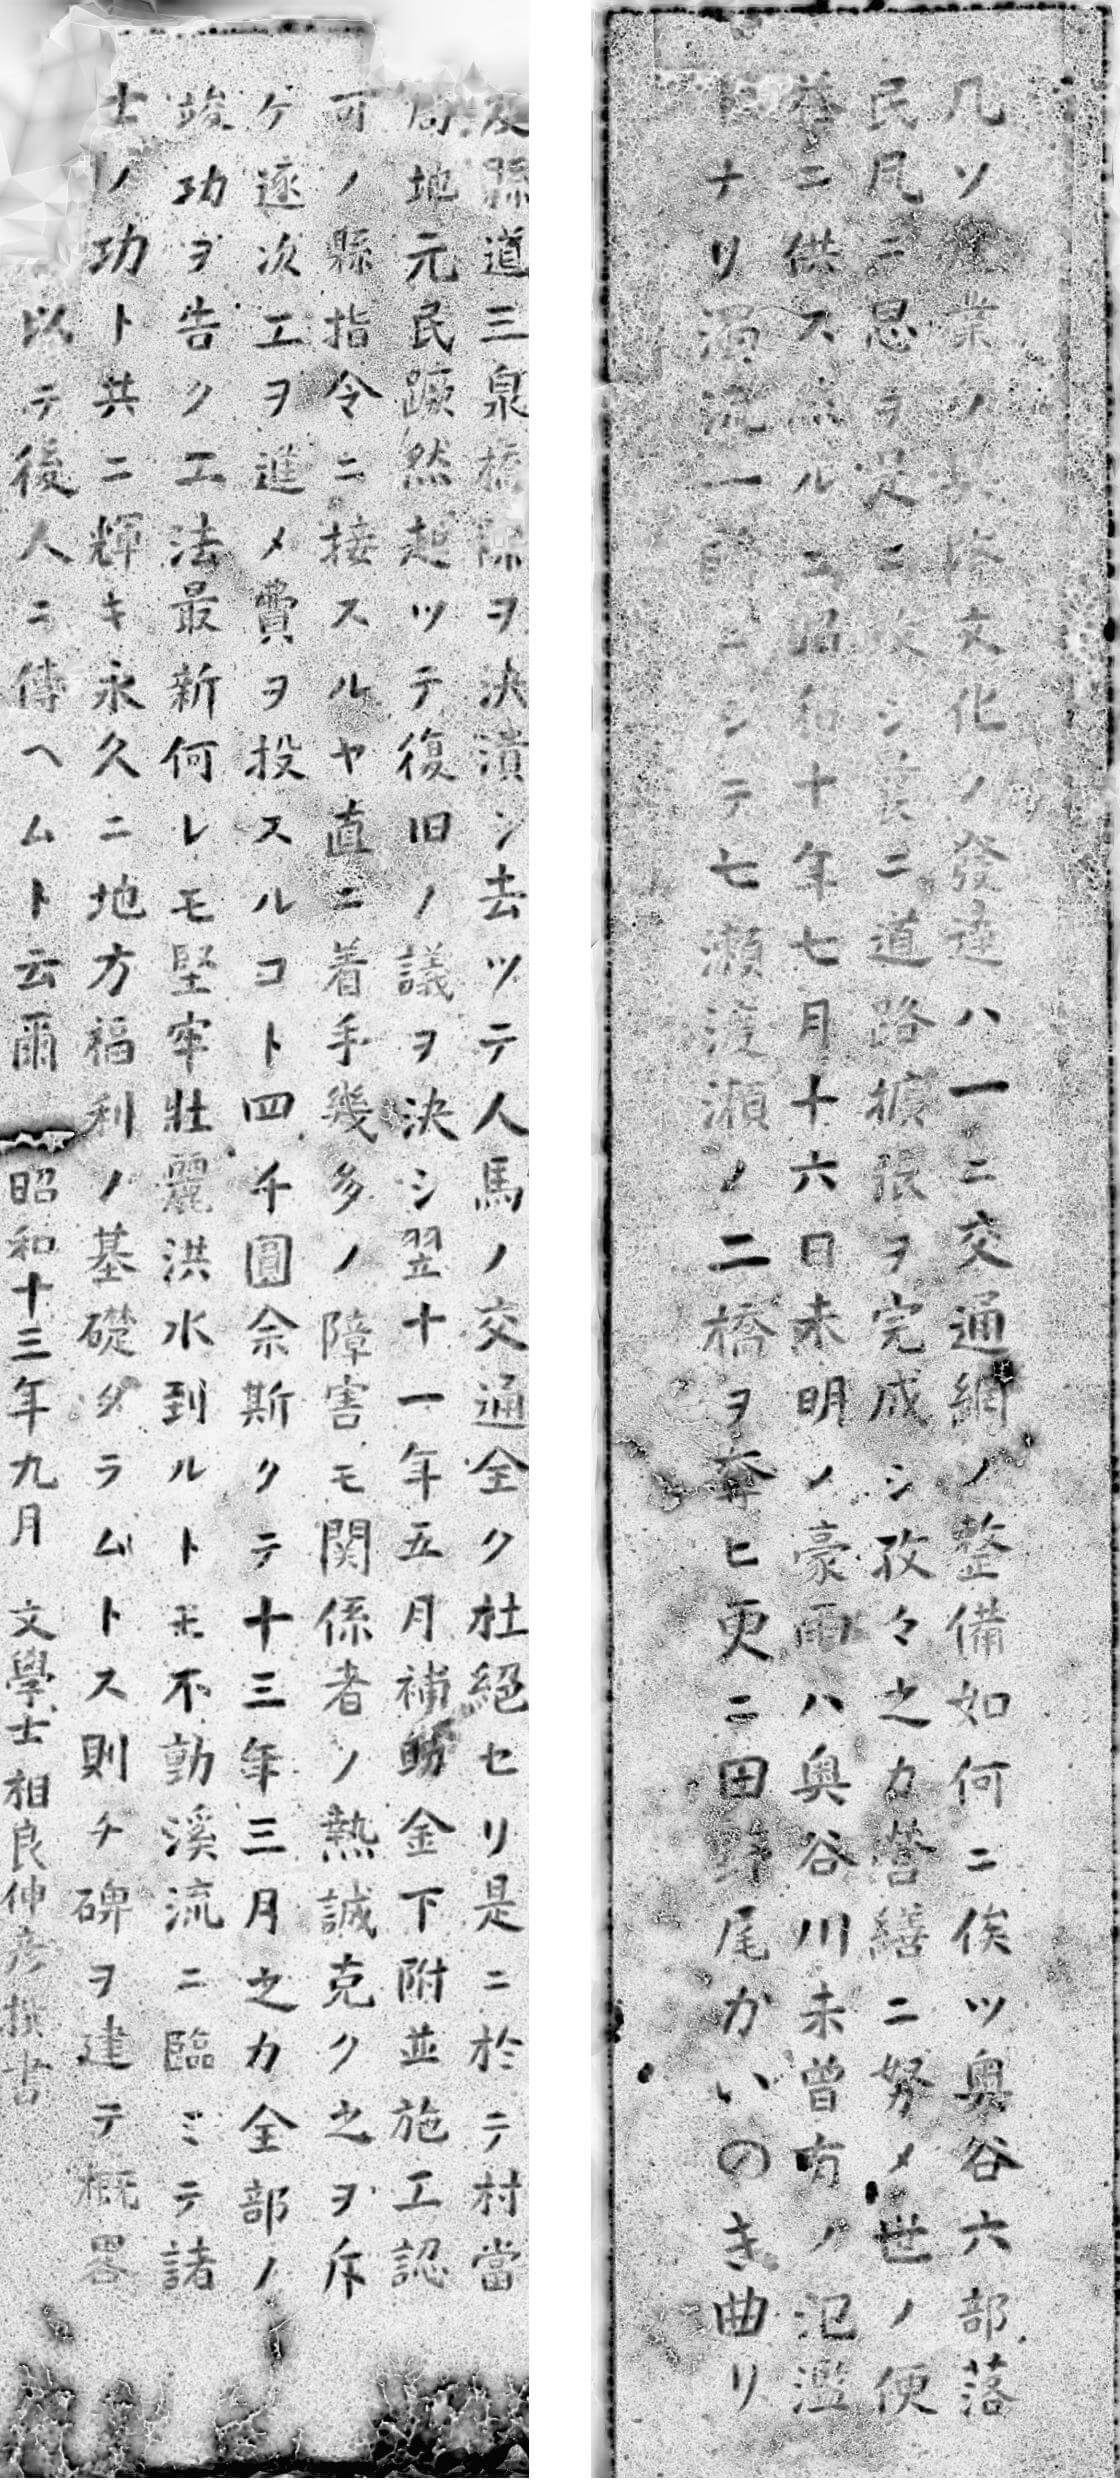 凡ソ業ノ文化ノ發達ハ一ニ交通網ノ整備如何ニ俟ツ奥谷六部落
民夙ニ思ヲ是ニ致シ曩ニ道路擴張ヲ完成シ孜々之カ營繕ニ努メ世ノ便
益ニ供ス然ルニ昭和十年七月十六日未明ノ豪雨ハ奥谷川未曾有ノ氾濫
トナリ濁流一瞬ニシテ七瀬渡瀬ノ二橋ヲ奪ヒ更ニ田尾かいのき曲リ
及縣道三泉橋際ヲ決潰シ去ツテ人馬ノ交通全ク杜絕セリ是ニ於テ村當
局地元民蹶然起ツテ復旧ノ議ヲ決シ翌十一年五月補助金下附並施工認
可ノ縣指令ニ接スルヤ直ニ着手幾多ノ障害モ関係者ノ熱誠克ク之ヲ斥
ケ逐次工ヲ進メ費ヲ投スルコト四千圓余斯クテ十三年三月之カ全部ノ
竣功ヲ告ク工法最新何レモ堅牢壯麗洪水到ルトモ不動溪流ニ臨ミテ諸
士ノ功ト共ニ輝キ永久ニ地方福利ノ基礎タラムトス則チ碑ヲ建テ概畧
以テ後人ニ傳ヘムト云爾　昭和十三年九月　文學士相良伸彦撰書